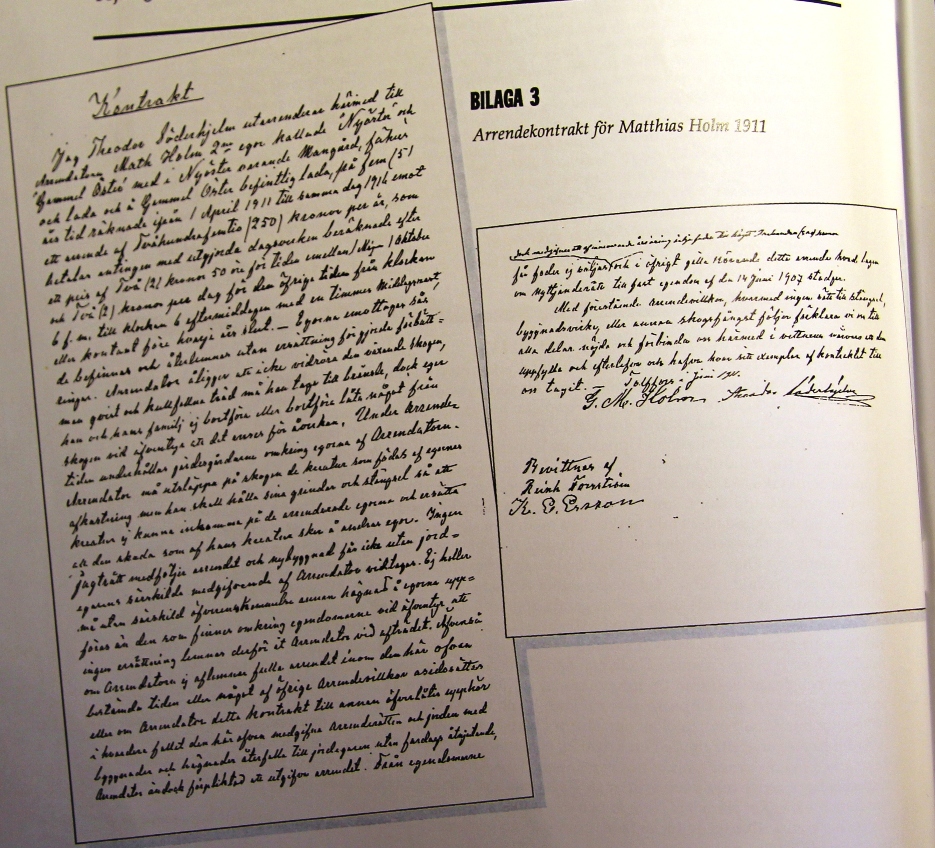 BILAGA 3
Arrendekontrakt för Matthias Holm 1911
Kontrakt
Jag Theodor Söderhjelm utarrenderar härmed till
Arrendatorn Math Holm 2ne egor kallade "Nyöster" och
"Gammel Öster" med i Nyöster varande Mangård, fähus
och lada och å Gammel Öster befintlig lada, på fem (5)
års tid räknade ifrån 1 April 1911 till samma dag 1916 emot
ett arrende af Tvåhundrafemtio (250) kronor per år, som
betalas antingen med utgjorda dagsverken beräknade efter
ett pris af Två (2) kronor 50 öre för tiden emellan 1 Oktober
och Två (2) kronor per dag för den öfriga tiden från klockan
6 f.m. till klockan 6 eftermiddagen med en timmes Middagsrast,
eller kontant före hvarje års slut. — Egorna emottages så,
de befinnes och återlemnas utan ersättning för gjorda förbätt=
ringar. Arrendator åligger att icke vidröra den växande skogen,
men qvist och kullfallna träd må han taga till bränsle, dock eger
han och hans familj ej bortföra eller bortföra låta något från
skogen vid äfventyr att det anses för åverkan. Under Arrende-
tiden underhållas gärdesgårdarne omkring egorna af Arrendatorn.
Arrendator må utsläppa på skogen de kreatur som födas af egornas
afkastning men han skall hålla sina grindar och stängsel så att
kreatur ej kunna inkomma på de arrenderade egorna och ersätta
all den skada som af hans kreatur sker å andras egor. Ingen
jagträtt medföljer arrendet och nybyggnad får icke utan jord=
egarens särskilda medgifvande af Arrendator vidtagas. Ej heller
må utan särskild öfverenskommelse annan hägnad å egorna upp=
föras än den som finnes omkring egendomarne vid äfventyr att
ingen ersättning lemnas derför åt Arrendator vid afträdet. Äfvenså
om Arrendatorn ej aflemnar fulla arrendet inom den här ofvan
bestämda tiden eller något af öfriga Arrendevillkor åsidosättes
eller om Arrendator detta kontrakt till annan öfverlåter upphör
i hvardera fallet den här ofvan medgifna Arrenderätten och jorden med
byggnader och hägnader återfalla till jordegaren utan fardags åtnjutande,
Arrendator ändock förpliktad att utgifva arrendet. Från egendomarne
får foder ej säljas och i öfrigt gälle rörande detta arrende hvad lagen
om nyttjanderätt till fast egendom af den 14 Juni 1907 stadgar.
Med förestående arrendevillkor, hvarmed ingen rätt till stängsel,
byggnadsvirke eller annan skogsfångst följer förklara vi oss till
alla delar nöjda och förbinda oss härmed i vittnens närvaro att dem
uppfylla och efterlefva och hafva hvar sitt exemplar af kontraktet till
oss tagit. Juni
G. M. Holm Theodor Söderhjelm
Bevittnas af
K. E. Ersson